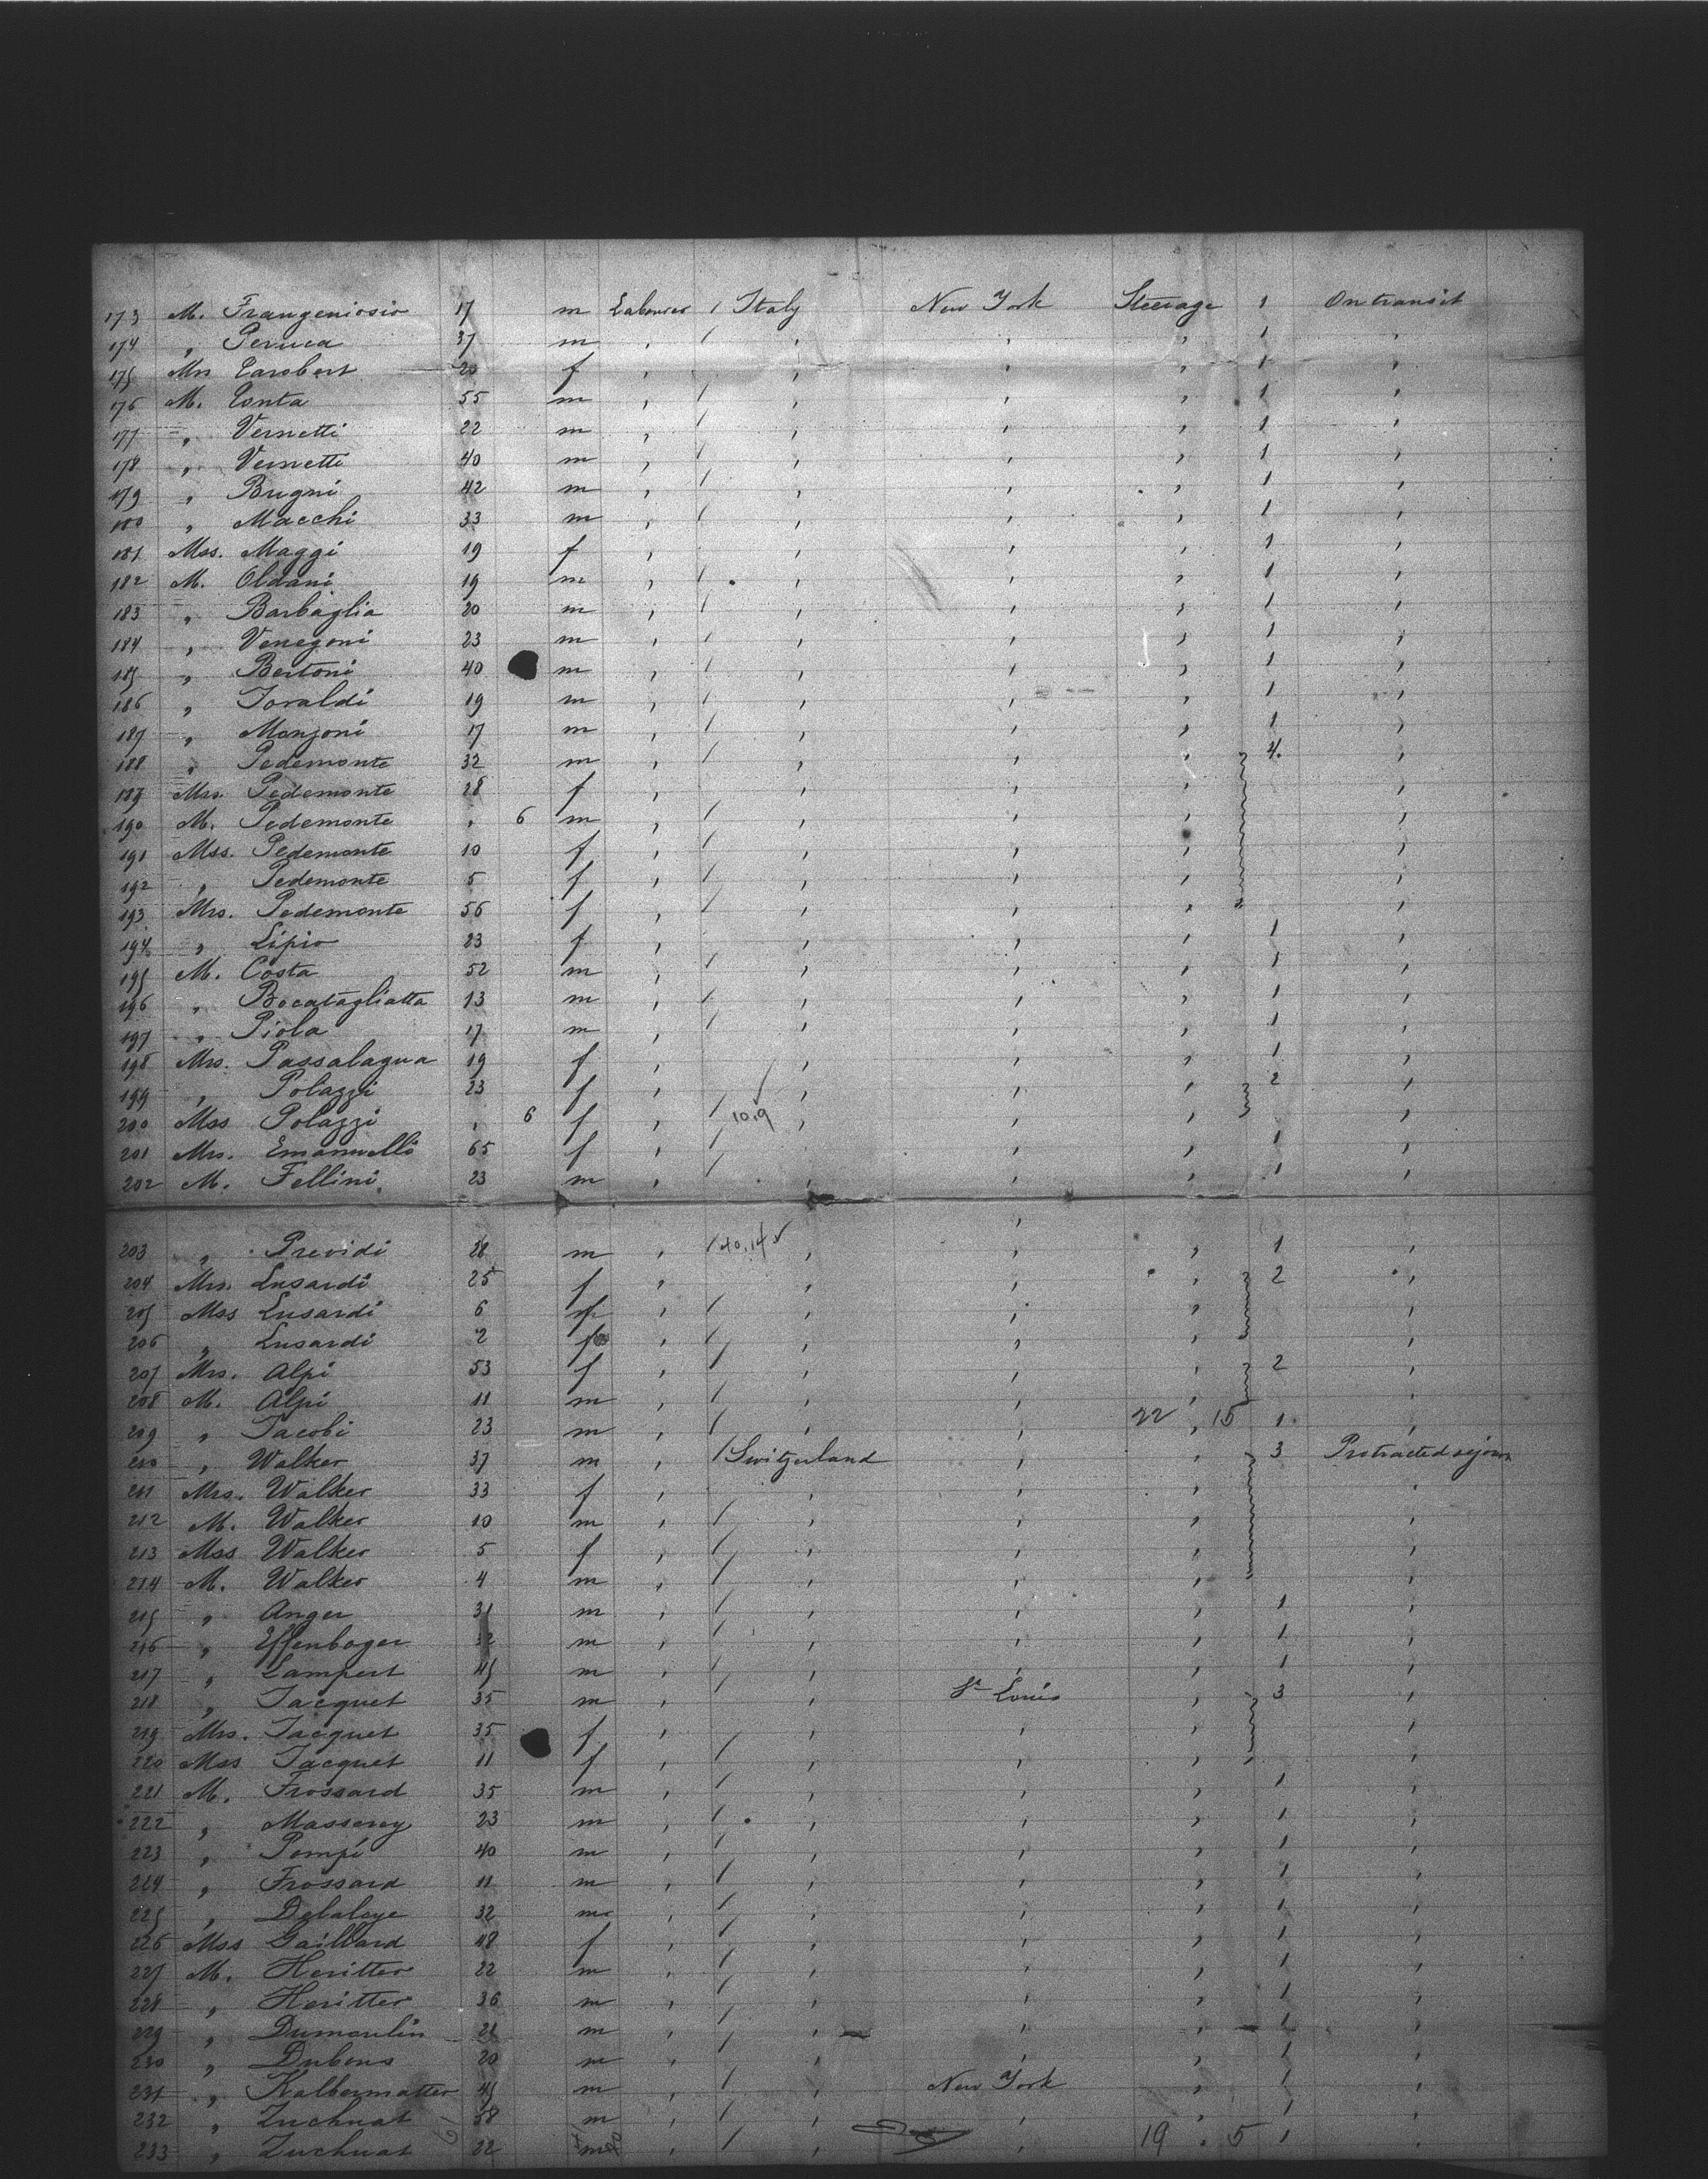 173 M. Frangeniosio 17 m Labourer / Italy New York Steerage 1 On transit
174 " Peruca 37 m " / " " " 1 "
175 Mrs Earobert 20 f " " " " 1 "
176 M. Conta 55 m " / " " " 1 "
177 " Vernetti 22 m " / " " " 1 "
178 " Vernetti 40 m " / " " " 1 "
179 " Brugni 42 m " / " " " 1 "
180 " Macchi 33 m " / " " " 1 "
181 Mss. Maggi 19 f " " " " 1 "
182 M. Oldani 19 m " / " " " 1 "
183 " Barbaglia 20 m " / " " " 1 "
184 " Venegoni 23 m " / " " " 1 "
185 " Bertoni 40 m " / " " " 1 "
186 " Toraldi 19 m " / " " " 1 "
187 " Monzoni 17 m " / " " " 1 "
188 " Pedemonte 32 m " / " " " 4. "
189 Mrs. Pedemonte 28 f " " " " "
190 M. Pedemonte " 6 m " / " " " "
191 Mss. Pedemonte 10 f " / " " " "
192 " Pedemonte 5 f " / " " " "
193 Mrs. Pedemonte 56 f " / " " " "
194 " Lipio 23 f " " " " 1 "
195 M. Costa 52 m " / " " " 1 "
196 " Bocatagliatta 13 m " / " " " 1 "
197 " Piola 17 m " / " " " 1 "
198 Mrs. Passalaqua 19 f " " " " 1 "
199 " Polazzi 23 f " " " " 2 "
200 Mss Polazzi " 6 f " / 10,9 " " " "
201 Mrs. Emanuelli 65 f " / " " 1 "
202 M. Fellini 23 m " / " " " 1 "
203 " Previdi 28 m " / 40,14 " " " 1 "
204 Mrs. Lusardi 25 f " " " " 2 "
205 Mss Lusardi 6 f " / " " " "
206 " Lusardi 2 f " / " " " "
207 Mrs. Alpi 53 f " / " " " 2 "
208 M. Alpi 11 m " / " " " "
209 " Jacobi 23 m " / " " 22 " 15 1 "
210 " Walker 37 m " / Switzerland " " 3 Protracted sejour
211 Mrs. Walker 33 f " " " " "
212 M. Walker 10 m " / " " " "
213 Mss Walker 5 f " / " " " "
214 M. Walker 4 m " / " " " "
215 " Anger 31 m " / " " " 1 "
216 " Effenboger 32 m " / " " " 1 "
217 " Lampert 45 m " / " " " 1 "
218 " Jacquet 35 m " " St Louis " 3 "
219 Mrs. Jacquet 35 f " " " " "
220 Mss Jacquet 11 f " / " " " "
221 M. Frossard 35 m " / " " " 1 "
222 " Masserey 23 m " / " " " 1 "
223 " Pompi 40 m " / " " " 1 "
224 " Frossard 11 m " / " " " 1 "
225 " Delaloye 32 m " / " " " 1 "
226 Mss Gaillard 18 f " / " " " 1 "
227 M. Heritter 22 m " / " " " 1 "
228 " Heritter 36 m " / " " " 1 "
229 " Dumoulin 21 m " / " " " 1 "
230 " Dubons 20 m " / " " " 1 "
231 " Kalbermatter 45 m " / " New York " 1 "
232 " Zuchuat 58 m " / " " " 1 "
233 " Zuchuat 22 m " / " " 19 " 5 1 "